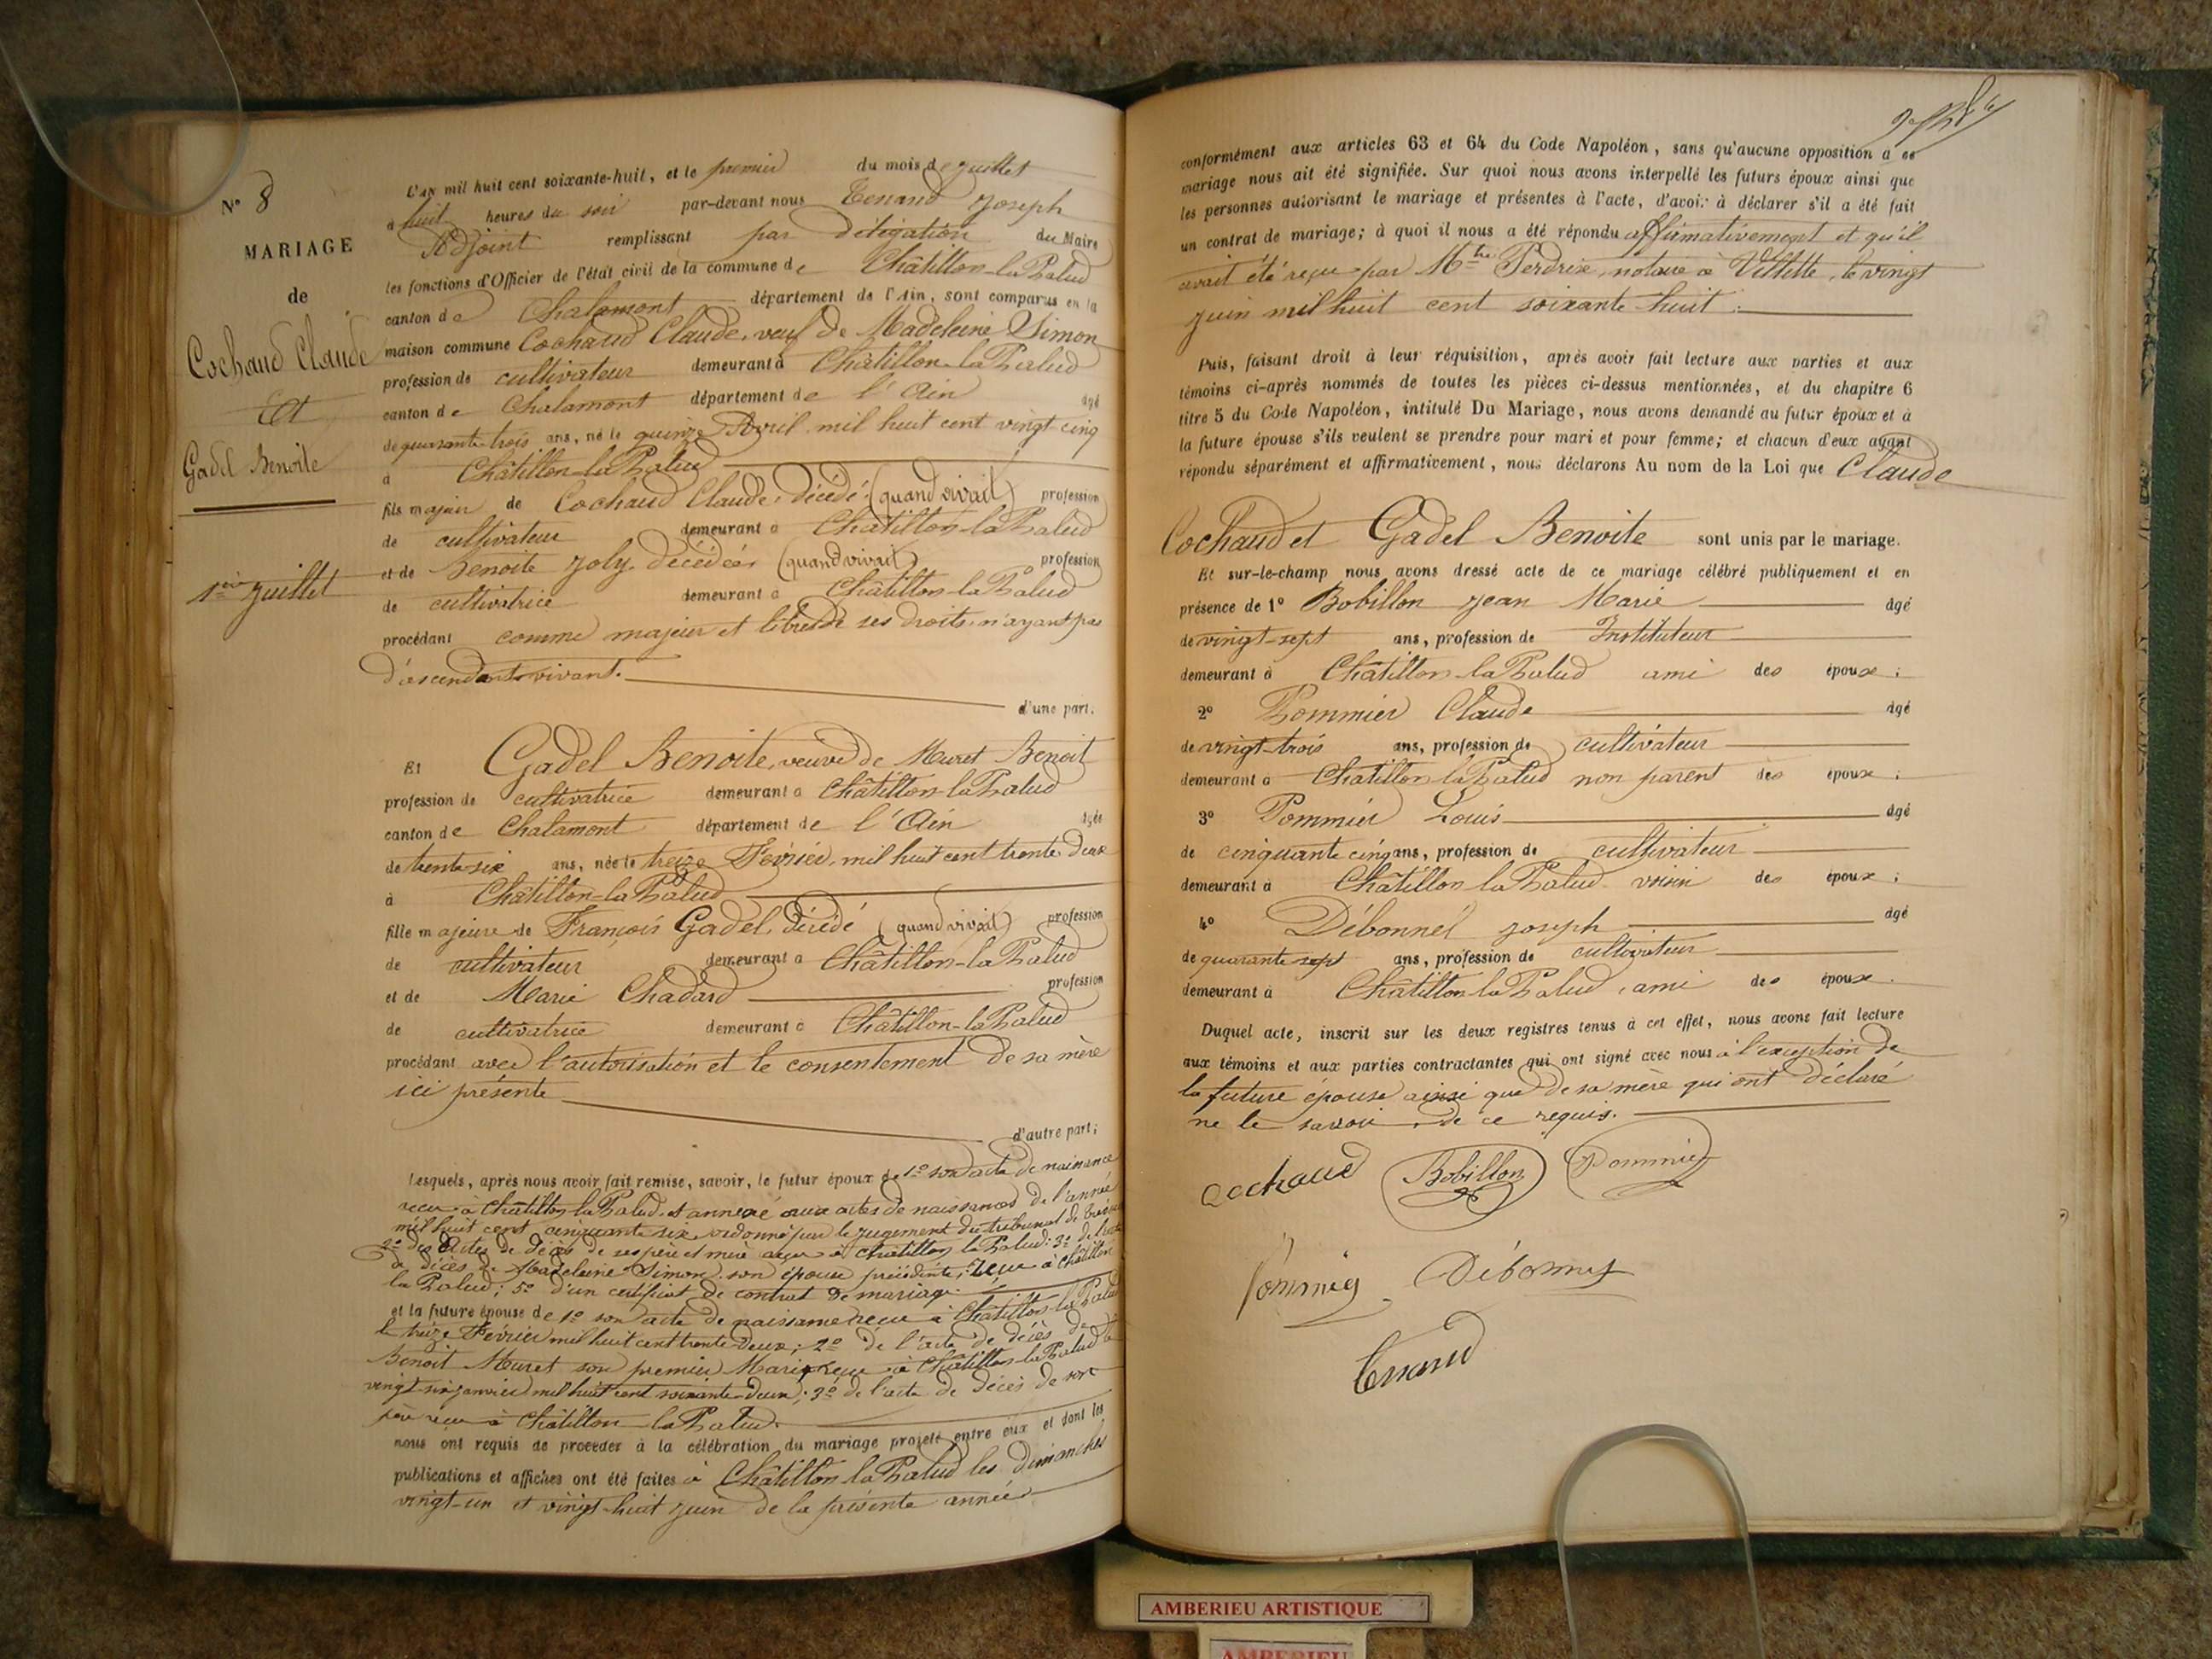 N° 8
MARIAGE
de
Cochaud Claude
Et
Gadel Benoite
1er Juillet
L'an mil huit cent soixante-huit, et le premier du mois de Juillet
à huit heures du soir par-devant nous Tenand Joseph
Adjoint remplissant par délégation du Maire
les fonctions d'Officier de l'état civil de la commune de Châtillon-la-Palud
canton de Chalamont département de l'Ain, sont comparus en la
maison commune Cochaud Claude, veuf de Madeleine Simon
profession de cultivateur demeurant à Châtillon-la-Palud
canton de Chalamont département de l'Ain âgé
de quarante-trois ans, né le quinze Avril mil huit cent vingt-cinq
à Châtillon-la-Palud
fils majeur de Cochaud Claude, décédé (quand vivait) profession
de cultivateur demeurant à Châtillon-la-Palud
et de Benoite Joly, décédée, (quand vivait) profession
de cultivatrice demeurant à Châtillon-la-Palud
procédant comme majeur et libre de ses droits, n'ayant pas
d'ascendants vivant.
d'une part.
Et Gadel Benoite, veuve de Muret Benoit
profession de cultivatrice demeurant à Châtillon-la-Palud
canton de Chalamont département de l'Ain âgée
de trente-six ans, née le treize Février, mil huit cent trente deux
à Châtillon-la-Palud
fille majeure de François Gadel, décédé (quand vivait) profession
de cultivateur demeurant à Châtillon-la-Palud
et de Marie Chadard profession
de cultivatrice demeurant à Châtillon-la-Palud
procédant avec l'autorisation et le consentement de sa mère
ici présente
d'autre part;
Lesquels, après nous avoir fait remise, savoir, le futur époux de 1° son acte de naissance
reçu à Châtillon la Palud et annexé aux actes de naissances de l'année
mil huit cent cinquante six, ordonné par le jugement du tribunal de Trévoux
2° des Actes de décès de ses père et mère reçus à Châtillon la Palud: 3° de l'acte
de décès de Madeleine Simon, son épouse précédente, reçu à Châtillon
la Palud; 5° d'un certificat de contrat de mariage.
et la future épouse de 1° son acte de naissance reçu à Châtillon-la-Palud
le treize Février mil huit cent trente deux; 2° de l'acte de décès de
Benoit Muret son premier Mari, reçu à Châtillon-la-Palud le
vingt-six janvier mil huit cent soixante-deux; 3° de l'acte de décès de son
père reçu à Châtillon-la-Palud.
nous ont requis de procéder à la célébration du mariage projeté entre eux et dont les
publications et affiches ont été faites à Châtillon la Palud les dimanches
vingt-un et vingt-huit juin de la présente année
conformément aux articles 63 et 64 du Code Napoléon, sans qu'aucune opposition à ce
mariage nous ait été signifiée. Sur quoi nous avons interpellé les futurs époux ainsi que
les personnes autorisant le mariage et présentes à l'acte, d'avoir à déclarer s'il a été fait
un contrat de mariage; à quoi il nous a été répondu affirmativement et qu'il
avait été reçu par Mtre Perdrix, notaire à Villette, le vingt
juin mil huit cent soixante huit.
Puis, faisant droit à leur réquisition, après avoir fait lecture aux parties et aux
témoins ci-après nommés de toutes les pièces ci-dessus mentionnées, et du chapitre 6
titre 5 du Code Napoléon, intitulé Du Mariage, nous avons demandé au futur époux et à
la future épouse s'ils veulent se prendre pour mari et pour femme; et chacun d'eux ayant
répondu séparément et affirmativement, nous déclarons Au nom de la Loi que Claude
Cochaud et Gadel Benoite sont unis par le mariage.
Et sur-le-champ nous avons dressé acte de ce mariage célébré publiquement et en
présence de 1° Bobillon Jean Marie âgé
de vingt-sept ans, profession de Instituteur
demeurant à Châtillon-la-Palud ami des époux;
2° Pommier Claude âgé
de vingt-trois ans, profession de cultivateur
demeurant à Châtillon-la-Palud non parent des époux;
3° Pommier Louis âgé
de cinquante cinq ans, profession de cultivateur
demeurant à Châtillon la Palud voisin des époux;
4° Débonnel Joseph âgé
de quarante-sept ans, profession de cultivateur
demeurant à Châtillon la Palud, ami des époux.
Duquel acte, inscrit sur les deux registres tenus à cet effet, nous avons fait lecture
aux témoins et aux parties contractantes qui ont signé avec nous à l'exception de
la future épouse ainsi que de sa mère qui ont déclaré
ne le savoir, de ce requis.
Cochaud Bobillon Pommier
Pommier Débonnel
Tenand
AMBERIEU ARTISTIQUE
AMBERIEU